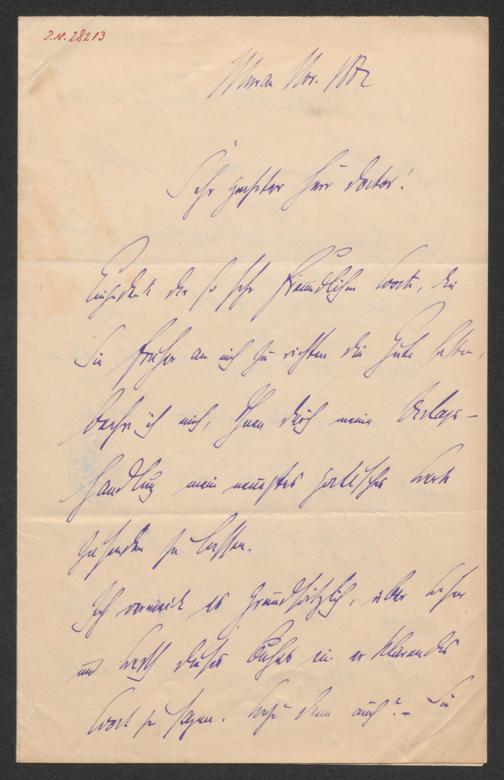 J.N. 28213
Meran Nov. 1882
Sehr geehrter Herr Doctor!
Eingedenk der so sehr freundlichen Worte, die
Sie früher an mich zu richten die Güte hatten,
beehre ich mich, Ihnen durch meine Verlags-
handlung mein neuestes poetisches Werk
zusenden zu lassen.
Ich vermeide es grundsätzlich, über
und Werth dieses Buches ein erklärendes
Wort zu sagen. Wozu denn auch? – Sie